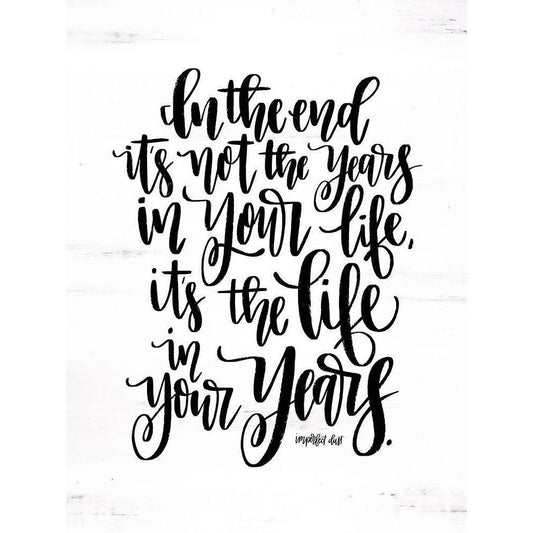 In the end
it's not the years
in your life,
it's the life
in
your years.
imperfect dust